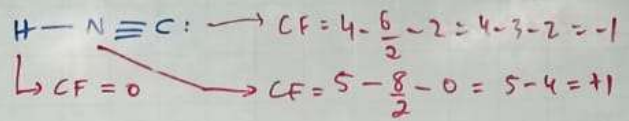 H — N ≡ C: → CF = 4 - 6/2 - 2 = 4 - 3 - 2 = -1
↳ CF = 0 → CF = 5 - 8/2 - 0 = 5 - 4 = +1